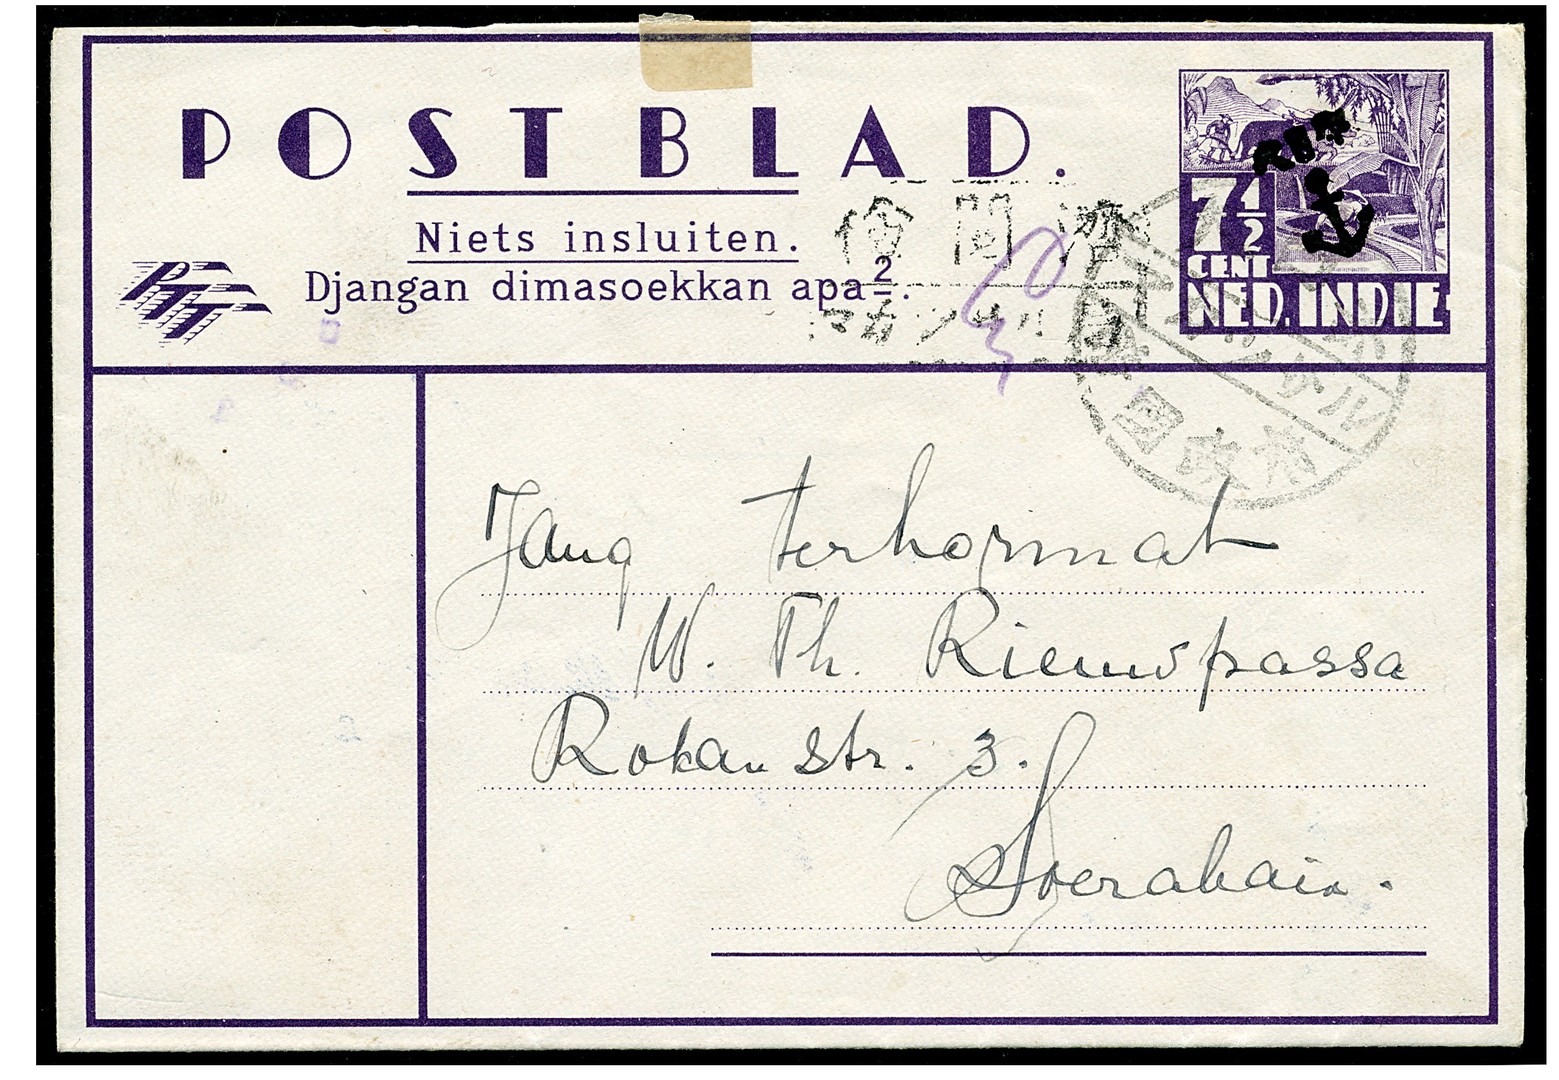 POSTBLAD.
Niets insluiten.
Djangan dimasoekkan apa2/2.
PTT
7 1/2
CENT
NED. INDIE
檢閲濟
マカツサル
Jang terhormat
W. Th. Riemspassa
Rokanstr. 3.
Soerabaia.